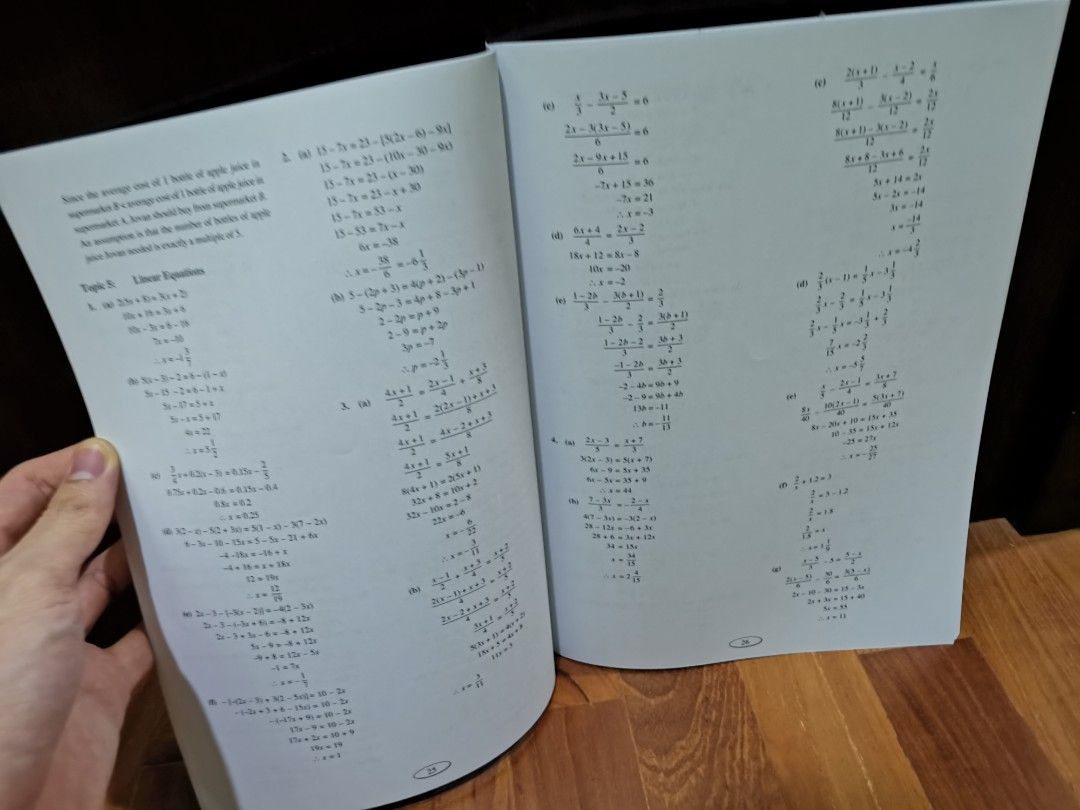 Since the average cost of 1 bottle of apple juice in
supermarket B < average cost of 1 bottle of apple juice in
supermarket A, Jovan should buy from supermarket B.
An assumption is that the number of bottles of apple
juice Jovan needed is exactly a multiple of 5.
Topic 8: Linear Equations
1. (a) 2(5x + 8) = 3(x + 2)
10x + 16 = 3x + 6
10x − 3x = 6 − 16
7x = −10
∴ x = −1 3/7
(b) 5(x − 3) − 2 = 6 − (1 − x)
5x − 15 − 2 = 6 − 1 + x
5x − 17 = 5 + x
5x − x = 5 + 17
4x = 22
∴ x = 5 1/2
(c) 3/4 x + 0.2(x − 3) = 0.15x − 2/5
0.75x + 0.2x − 0.6 = 0.15x − 0.4
0.8x = 0.2
∴ x = 0.25
(d) 3(2 − x) − 5(2 + 3x) = 5(1 − x) − 3(7 − 2x)
6 − 3x − 10 − 15x = 5 − 5x − 21 + 6x
−4 − 18x = −16 + x
−4 + 16 = x + 18x
12 = 19x
∴ x = 12/19
(e) 2x − 3 − [−3(x − 2)] = −4(2 − 3x)
2x − 3 − (−3x + 6) = −8 + 12x
2x − 3 + 3x − 6 = −8 + 12x
5x − 9 = −8 + 12x
−9 + 8 = 12x − 5x
−1 = 7x
∴ x = −1/7
(f) −[−(2x − 3) + 3(2 − 5x)] = 10 − 2x
−(−2x + 3 + 6 − 15x) = 10 − 2x
−(−17x + 9) = 10 − 2x
17x − 9 = 10 − 2x
17x + 2x = 10 + 9
19x = 19
∴ x = 1
2. (a) 15 − 7x = 23 − [5(2x − 6) − 9x]
15 − 7x = 23 − (10x − 30 − 9x)
15 − 7x = 23 − (x − 30)
15 − 7x = 23 − x + 30
15 − 7x = 53 − x
15 − 53 = 7x − x
6x = −38
∴ x = −38/6 = −6 1/3
(b) 5 − (2p + 3) = 4(p + 2) − (3p − 1)
5 − 2p − 3 = 4p + 8 − 3p + 1
2 − 2p = p + 9
2 − 9 = p + 2p
3p = −7
∴ p = −2 1/3
3. (a) (4x + 1)/2 = (2x − 1)/4 + (x + 3)/8
(4x + 1)/2 = (2(2x − 1) + x + 3)/8
(4x + 1)/2 = (4x − 2 + x + 3)/8
(4x + 1)/2 = (5x + 1)/8
8(4x + 1) = 2(5x + 1)
32x + 8 = 10x + 2
32x − 10x = 2 − 8
22x = −6
x = −6/22
∴ x = −3/11
(b) (x − 1)/2 + (x + 3)/4 = (x + 2)/5
(2(x − 1) + x + 3)/4 = (x + 2)/5
(2x − 2 + x + 3)/4 = (x + 2)/5
(3x + 1)/4 = (x + 2)/5
5(3x + 1) = 4(x + 2)
15x + 5 = 4x + 8
11x = 3
∴ x = 3/11
25
(c) x/3 − (3x − 5)/2 = 6
(2x − 3(3x − 5))/6 = 6
(2x − 9x + 15)/6 = 6
−7x + 15 = 36
−7x = 21
∴ x = −3
(d) (6x + 4)/4 = (2x − 2)/3
18x + 12 = 8x − 8
10x = −20
∴ x = −2
(e) (1 − 2b)/3 − 3(b + 1)/2 = 2/3
(1 − 2b)/3 − 2/3 = 3(b + 1)/2
(1 − 2b − 2)/3 = (3b + 3)/2
(−1 − 2b)/3 = (3b + 3)/2
−2 − 4b = 9b + 9
−2 − 9 = 9b + 4b
13b = −11
∴ b = −11/13
4. (a) (2x − 3)/5 = (x + 7)/3
3(2x − 3) = 5(x + 7)
6x − 9 = 5x + 35
6x − 5x = 35 + 9
∴ x = 44
(b) (7 − 3x)/3 = −(2 − x)/4
4(7 − 3x) = −3(2 − x)
28 − 12x = −6 + 3x
28 + 6 = 3x + 12x
34 = 15x
x = 34/15
∴ x = 2 4/15
(c) 2(x + 1)/3 − (x − 2)/4 = x/6
8(x + 1)/12 − 3(x − 2)/12 = 2x/12
(8(x + 1) − 3(x − 2))/12 = 2x/12
(8x + 8 − 3x + 6)/12 = 2x/12
5x + 14 = 2x
5x − 2x = −14
3x = −14
x = −14/3
∴ x = −4 2/3
(d) 2/3 (x − 1) = 1/5 x − 3 1/3
2/3 x − 2/3 = 1/5 x − 3 1/3
2/3 x − 1/5 x = −3 1/3 + 2/3
7/15 x = −2 2/3
∴ x = −5 5/7
(e) x/5 − (2x − 1)/4 = (3x + 7)/8
8x/40 − 10(2x − 1)/40 = 5(3x + 7)/40
8x − 20x + 10 = 15x + 35
10 − 35 = 15x + 12x
−25 = 27x
∴ x = −25/27
(f) 2/x + 1.2 = 3
2/x = 3 − 1.2
2/x = 1.8
2/1.8 = x
∴ x = 1 1/9
(g) (x − 5)/3 − 5 = (5 − x)/2
2(x − 5)/6 − 30/6 = 3(5 − x)/6
2x − 10 − 30 = 15 − 3x
2x + 3x = 15 + 40
5x = 55
∴ x = 11
26